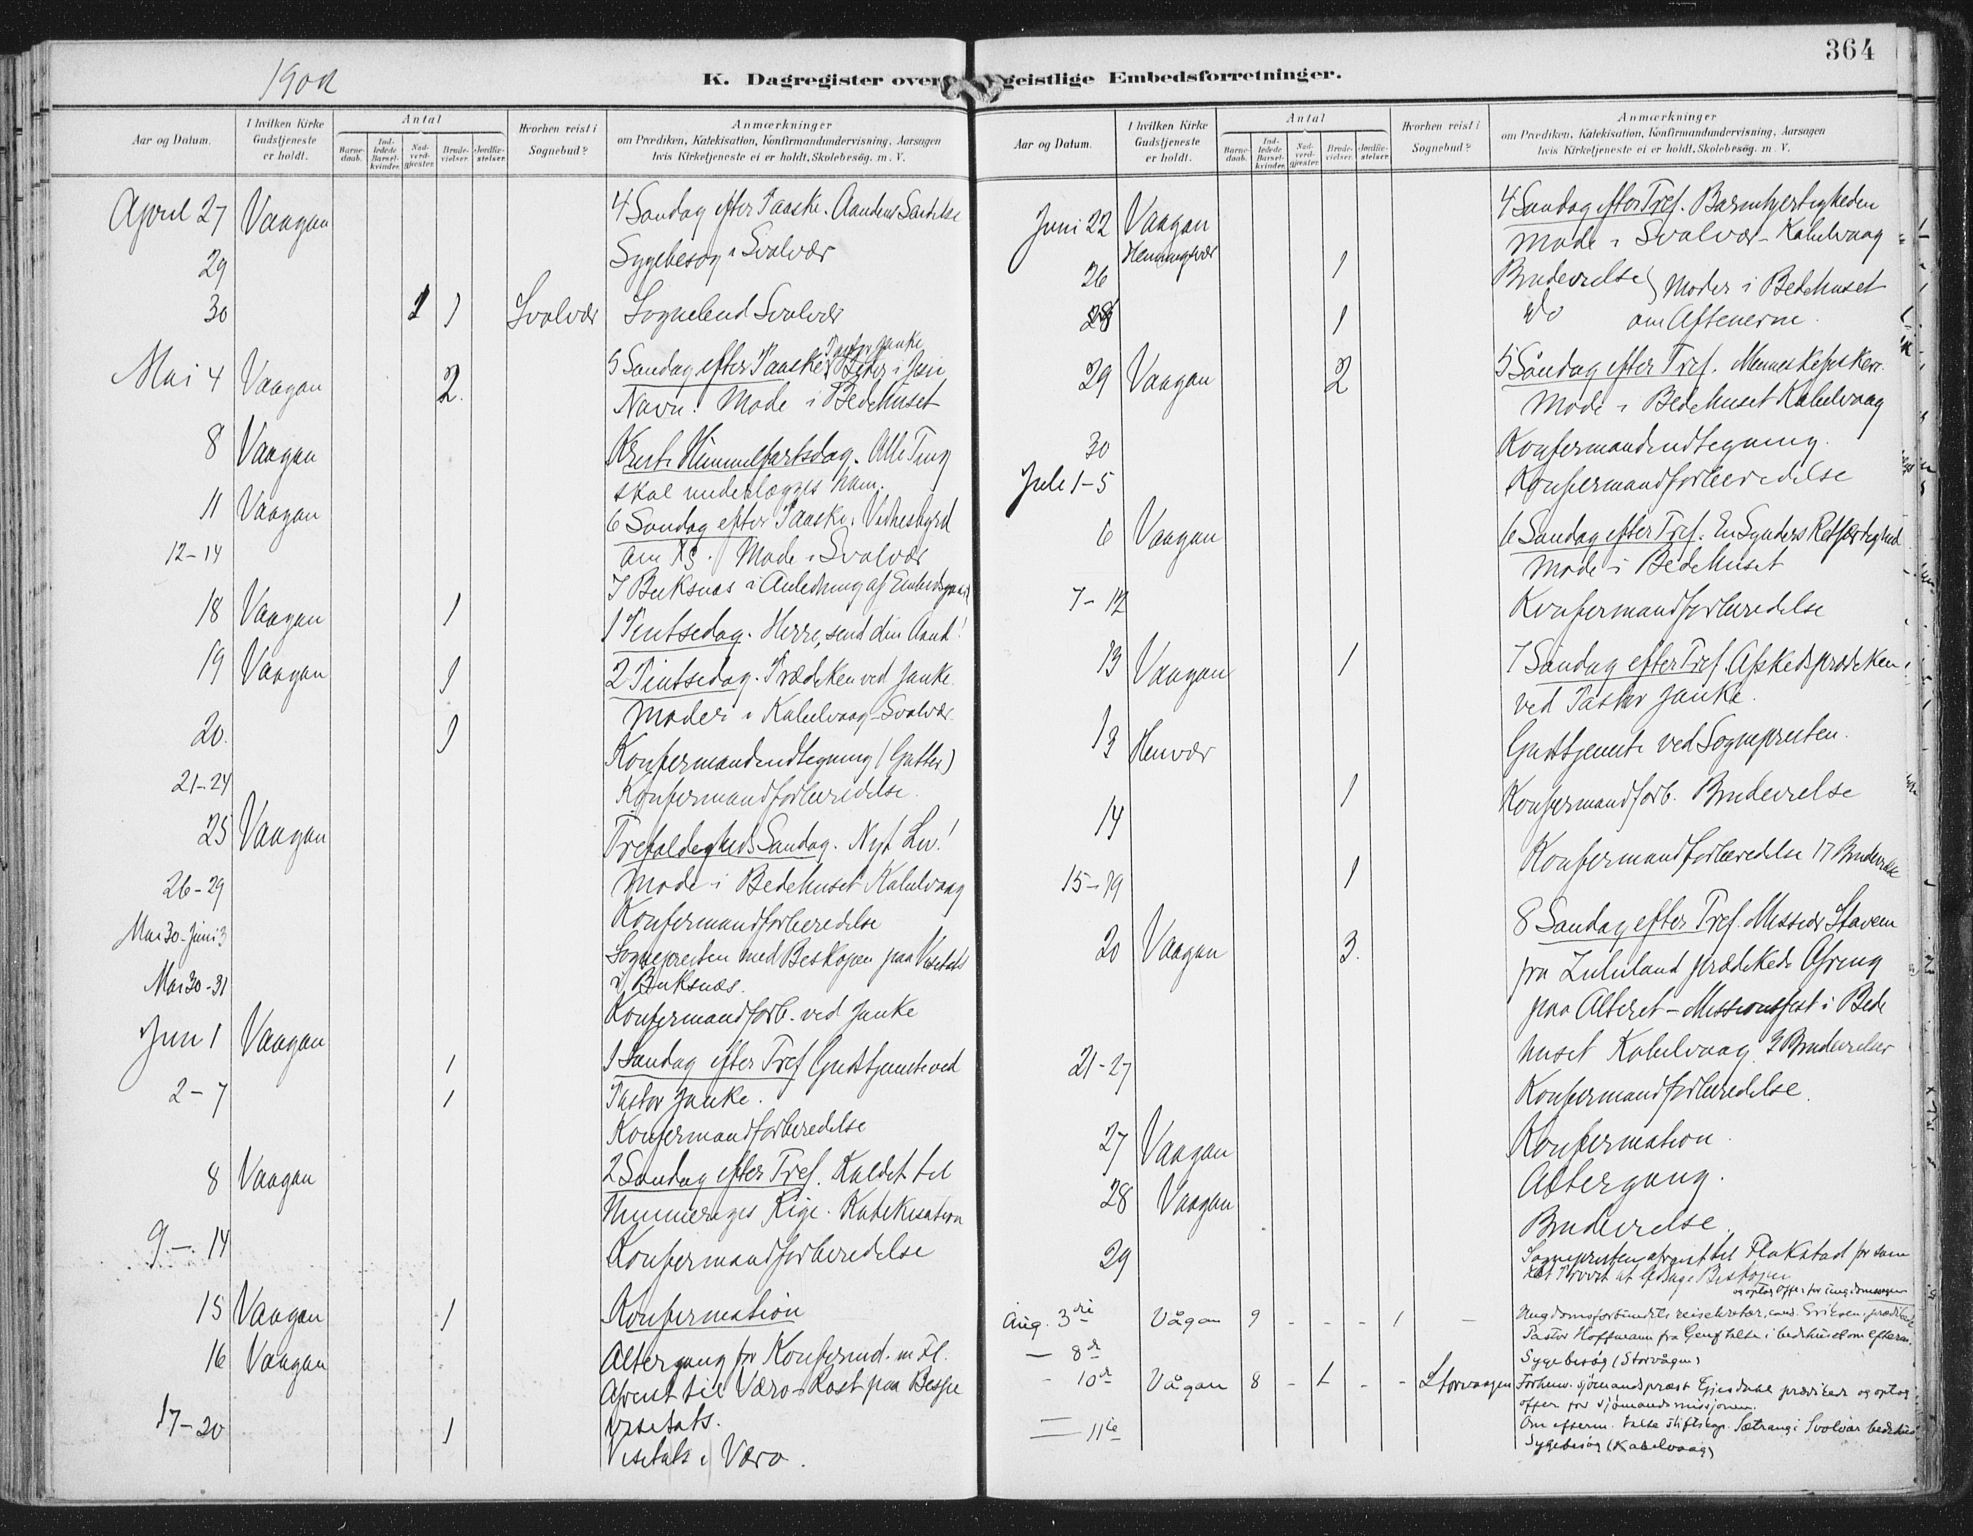 364
1902
K. Dagregister over geistlige Embedsforretninger.
Aar og Datum. I hvilken Kirke Gudstjeneste er holdt. Antal Barnedaab. Indledede Barselkvinder. Nadverdgjester. Brudevielser. Jordfæstelser. Hvorhen reist i Sognebud? Anmærkninger om Prædiken, Katekisation, Konfirmandundervisning, Aarsagen hvis Kirketjeneste ei er holdt, Skolebesøg. m. V.
April 27 Vaagan 4 Søndag efter Paaske. Aandens Sendelse
29 Sygebesøg i Svolvær
30 1 1 Svolvær Sognebud Svolvær
Pastor Janke
Mai 4 Vaagan 2. 5 Søndag efter Paaske. Beder i Jesu
Navn! Møde i Bedehuset
8 Vaagan Kristi Himmelfartsdag. Alle Ting
skal underlægges ham.
11 Vaagan 6 Søndag efter Paaske. Vidnesbyrd
om Møde i Svolvær
12-14 I Buksnæs i Anledning af
18 Vaagan 1 1 Pintsedag. Herre, send din Aand!
19 Vaagan 1 2 Pintsedag. Prædiken ved Janke.
Møder i Kabelvaag - Svolvær.
20. 1 Konfirmandindtegning (Gutter)
21-24 Konfirmandforberedelse.
25 Vaagan Trefoldigheds Søndag. Nyt Liv!
Møde i Bedehuset Kabelvaag
26-29 Konfirmandforberedelse
Mai 30-Juni 3 Sognepresten med Biskopen paa Visitats
i Buksnæs.
Mai 30-31 Konfirmandforb. ved Janke
Juni 1 Vaagan 1 1 Søndag efter Tref. Gudstjeneste ved
Pastor Janke.
2-7 1 Konfirmandforberedelse
8 Vaagan 2 Søndag efter Tref. Kaldet til
Himmeriges Rige. Katekisation
9-14 Konfirmandforberedelse
15 Vaagan 1 Konfirmation
16 Vaagan Altergang for Konfirmd. m Fl.
Afreist til Værø-Røst paa Bispe
visitats.
17-20 1 Visitats i Værø.
Aar og Datum. I hvilken Kirke Gudstjeneste er holdt. Antal Barnedaab. Indledede Barselkvinder. Nadverdgjester. Brudevielser. Jordfæstelser. Hvorhen reist i Sognebud? Anmærkninger om Prædiken, Katekisation, Konfirmandundervisning, Aarsagen hvis Kirketjeneste ei er holdt, Skolebesøg. m. V.
Juni 22 Vaagan 4 Søndag efter Tref. Barmhjertigheden
Møde i Svolvær - Kabelvaag
Henningsvær
26 1 Brudevielse } Møder i Bedehuset
28 1 do om Aftenerne.
29 Vaagan 2 5 Søndag efter Tref. Menneskefisker.
Møde i Bedehuset Kabelvaag
30 Konfirmandindtegning.
Juli 1-5 Konfirmandforberedelse
6 Vaagan 6 Søndag efter Tref. En Synders Retfærdighed
Møde i Bedehuset
7-12 Konfirmandforberedelse
13 Vaagan 1 7 Søndag efter Tref. Afskedsprædiken
ved Pastor Janke.
13 Henvær Gudstjeneste ved Sognepresten.
14 1 Konfirmandforb. Brudevielse
15-19 1 Konfirmandforberedelse 17 Brudevielse
20 Vaagan 3. 8 Søndag efter Tref. Missionær Stavem
fra Zululand prædikede Ofring
paa Alteret - Missionsfest i Bede
huset Kabelvaag. 3 Brudevielser
21-27 Konfirmandforberedelse.
27 Vaagan Konfirmation.
28 Vaagan Altergang.
Brudevielse.
29 Sognepresten afreist til Flakstad for som
Provst at ledsage Biskopen
og optog offer for ungdomssagen
Aug. 3die Vågan 9 - - - 1 - Ungdomsforbundets reisesekretær, cand. Eriksen, prædikede
Pastor Hoffmann fra Genf talte i bedehuset om efterm.
— 8de Sygebesøg (Storvågen)
- 10de Vågan 8 - 1 - - Storvaagen Forhenv. sjømandsprest Gjesdahl prædikede og optog
offer for sjømandsmissjonen.
Om efterm. talte stiftskap. Sætrang i Svolvær bedehus
— 11te Sygebesøg (Kabelvaag)